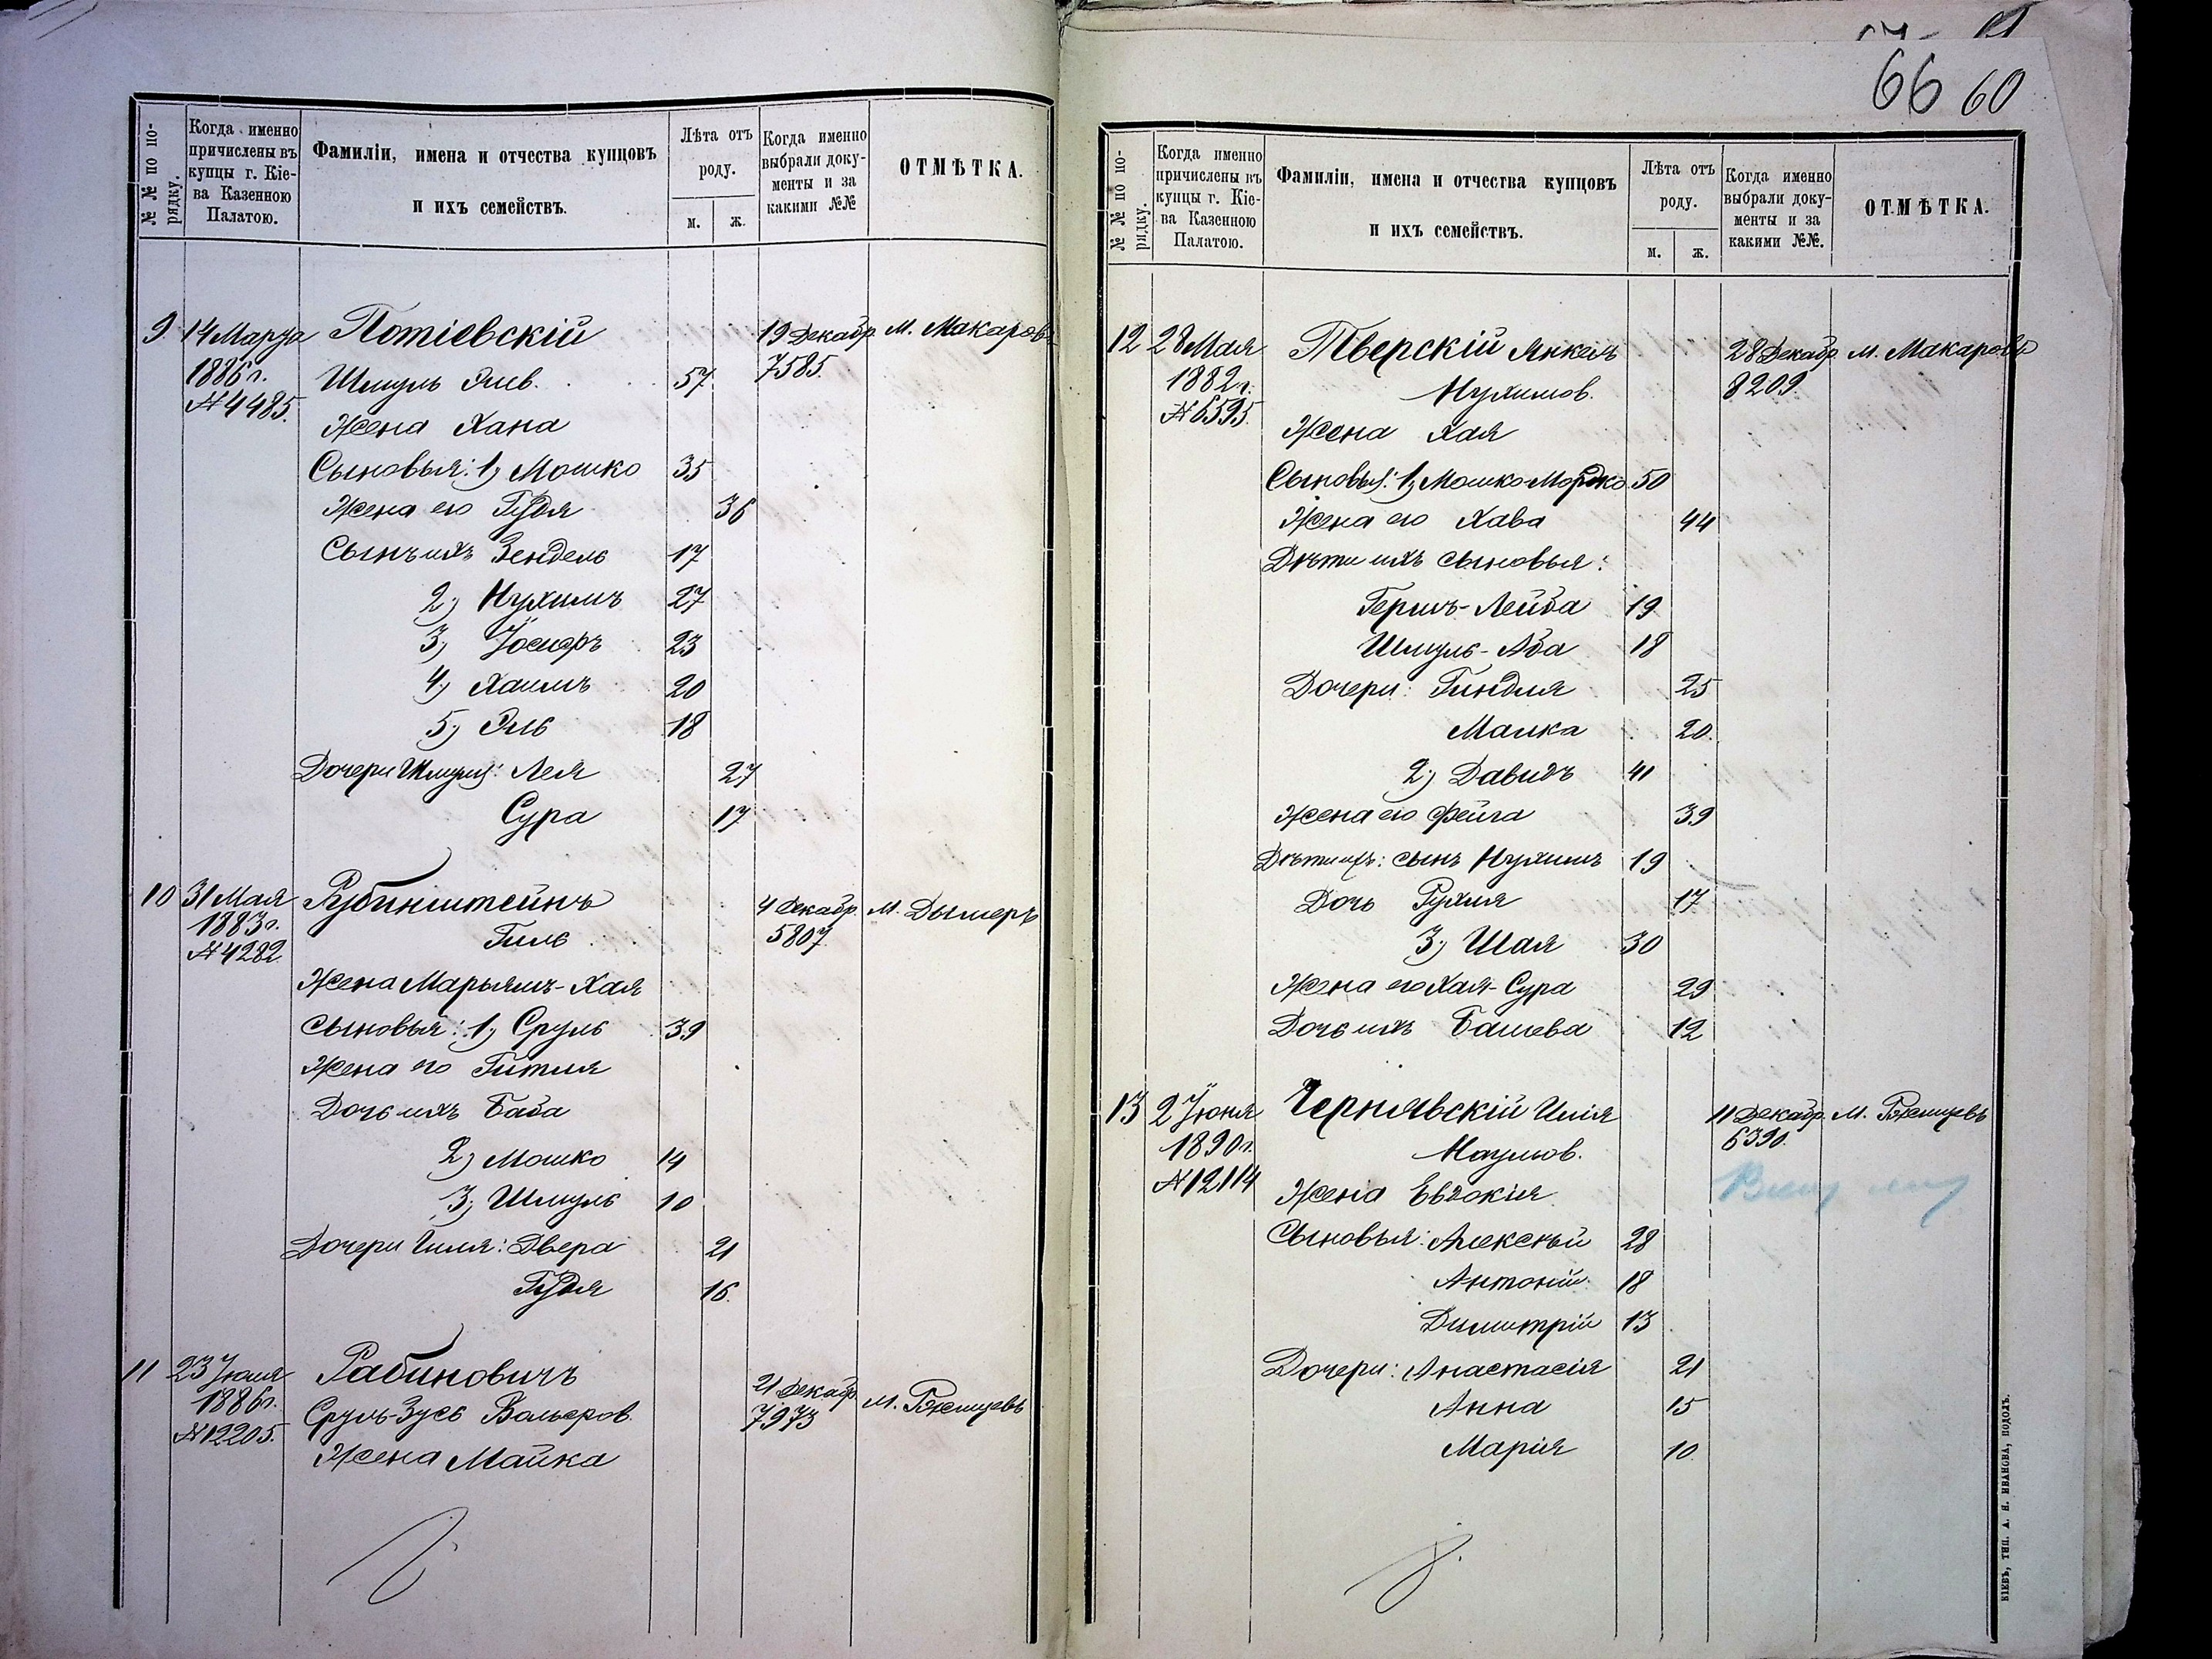 66 60
№ № по по-
рядку.
Когда именно
причислены въ
купцы г. Кіе-
ва Казенною
Палатою.
Фамиліи, имена и отчества купцовъ
и ихъ семействъ.
Лѣта отъ
роду.
м. ж.
Когда именно
выбрали доку-
менты и за
какими №№
ОТМѢТКА.
9 14 Марта Потіевскій 19 Декабр. М. Макаровъ
1886 г. Шмуль Элев. 57 7585.
№ 4485. Жена Хана
Сыновья: 1) Мошко 35
Жена его Гудля 36
Сынъ ихъ Зендель 17
2) Нухимъ 27
3) 23
4) Хаимъ 20
5) Эль 18
Дочери Шмуля: Лея 27
Сура 17
10 31 Мая Рубинштейнъ 4 Декабр. М. Дымеръ
1883 г. Гиль 5807
№ 4282. Жена Марьямъ-Хая
Сыновья: 1) Сруль 39
Жена его Гитля
Дочь ихъ Баба
2) Мошко 14
3) Шмуль 10
Дочери Гиля: Двера 21
Гудля 16.
11 23 Іюля Рабиновичъ 21 Декабр. М. Ржищевъ
1886 г. Сруль-Зусь 7973
№ 12205. Жена Малка
№ № по по-
рядку.
Когда именно
причислены въ
купцы г. Кіе-
ва Казенною
Палатою.
Фамиліи, имена и отчества купцовъ
и ихъ семействъ.
Лѣта отъ
роду.
м. ж.
Когда именно
выбрали доку-
менты и за
какими №№.
ОТМѢТКА.
12 28 Мая Тверскій Янкель 28 Декабр. М. Макаровъ
1882 г. Нухимов. 8209.
№ 6595. Жена Хая
Сыновья: 1) Мошко-Мордко 50
Жена его Хава 44
Дѣти ихъ сыновья:
Гершъ-Лейба 19
Шмуль-Аба 18
Дочери: Гиндля 25
Малка 20.
2) Давидъ 41
Жена его Фейга 39
Дѣти ихъ: сынъ Нухимъ 19
Дочь Рухля 17
3) Шая 30
Жена его Хая-Сура 29
Дочь ихъ Башева 12
13 2 Іюня Чернявскій Илія 11 Декабр. М. Ржищевъ
1890 г. Наумов. 6390.
№ 12114 Жена Евдокія
Сыновья: Алексѣй 28
Антоній 18
Димитрій 13
Дочери: Анастасія 21
Анна 15
Марія 10.
КІЕВЪ, ТИП. А. Н. ИВАНОВА, ПОДОЛЪ.